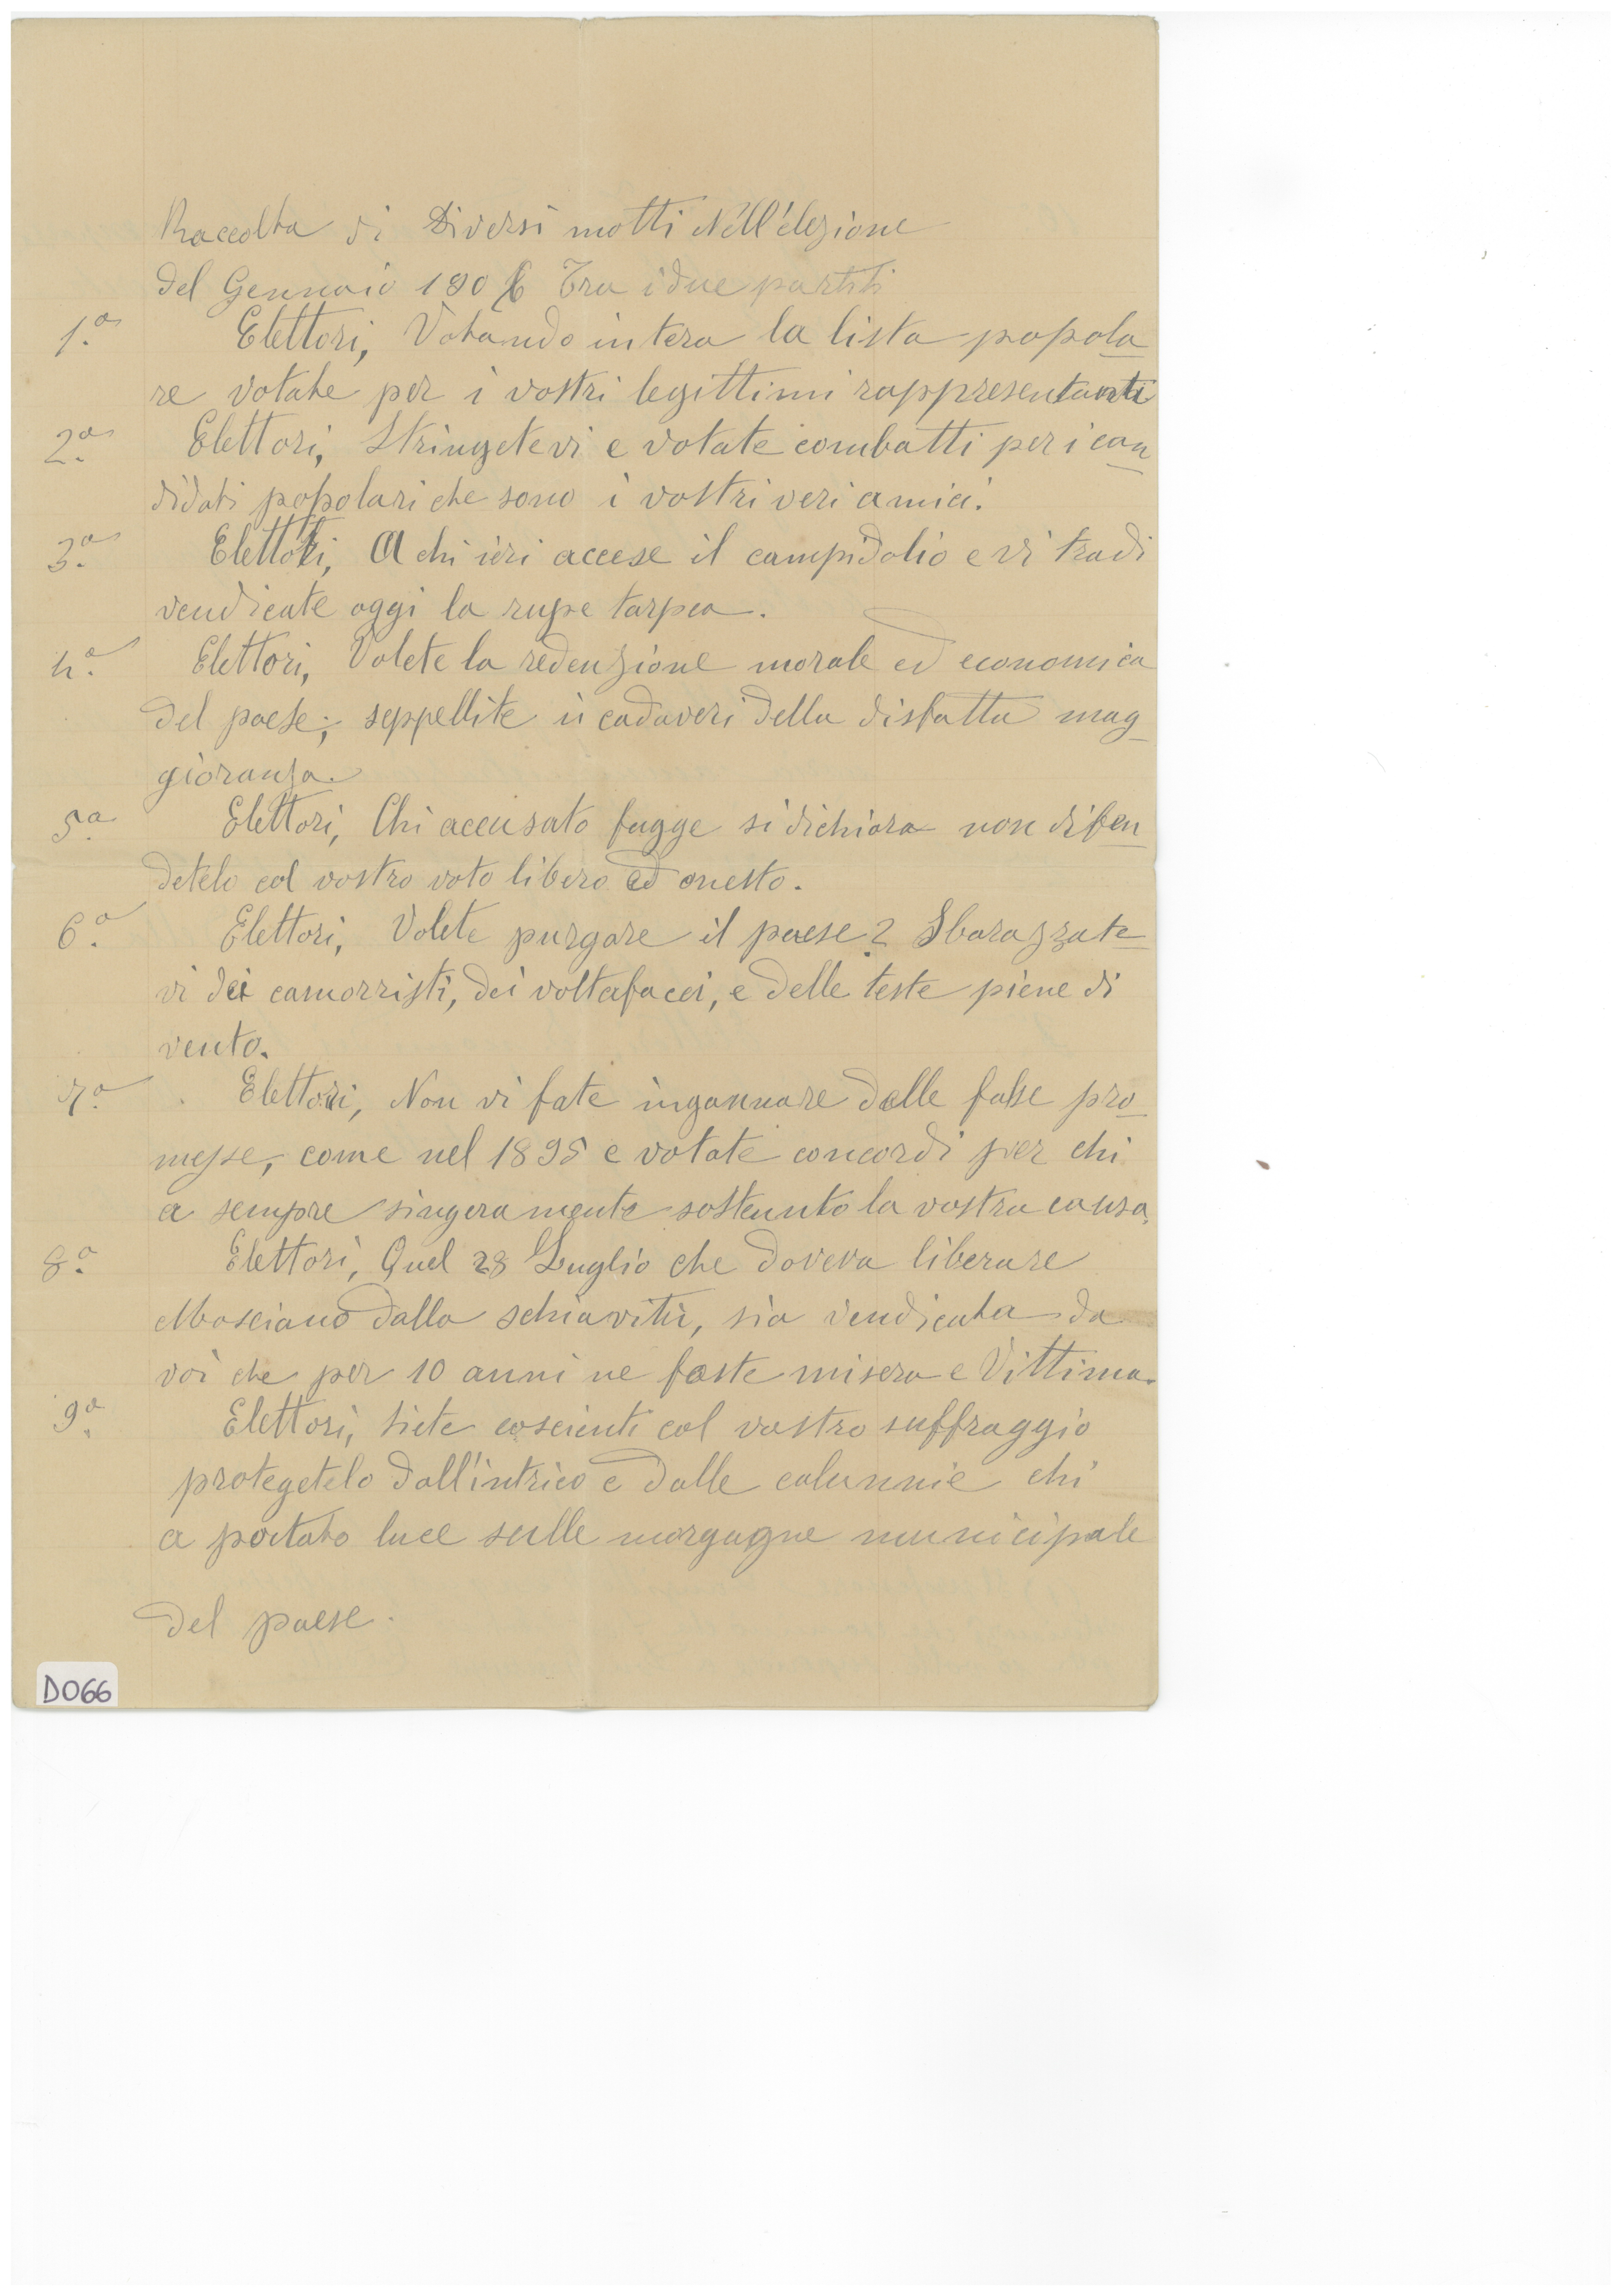 Raccolta di Diversi motti Nell'elezione
del Gennaio 1906 Tra i due partiti
1.a Elettori, Votando intera la lista popola
re votate per i vostri legittimi rappresentanti
2.a Elettori, Stringetevi e votate combatti per i can
didati popolari che sono i vostri veri amici.
3.a Elettori, A chi ieri accese il campidolio e vi tradi
vendicate oggi la rupe tarpea.
4.a Elettori, Volete la redenzione morale ed economica
del paese; seppellite i cadaveri della disfatta mag
gioranza.
5.a Elettori, Chi accusato fugge si dichiara non difen
detelo col vostro voto libero ed onesto.
6.a Elettori, Volete purgare il paese? Sbarazzate
vi dei camorristi, dei voltafacci, e delle teste piene di
vento.
7.a Elettori, Non vi fate ingannare dalle false pro
messe, come nel 1895 e votate concordi per chi
a sempre singeramente sostenuto la vostra causa.
8.a Elettori, Quel 28 Luglio che doveva liberare
Mosciano dalla schiavitù, sia vendicata da
voi che per 10 anni ne foste misera e Vittima.
9.a Elettori, siete coscienti col vostro suffraggio
protegetelo dall'intrico e dalle calunnie chi
a portato luce sulle margagne municipale
del paese.
D066